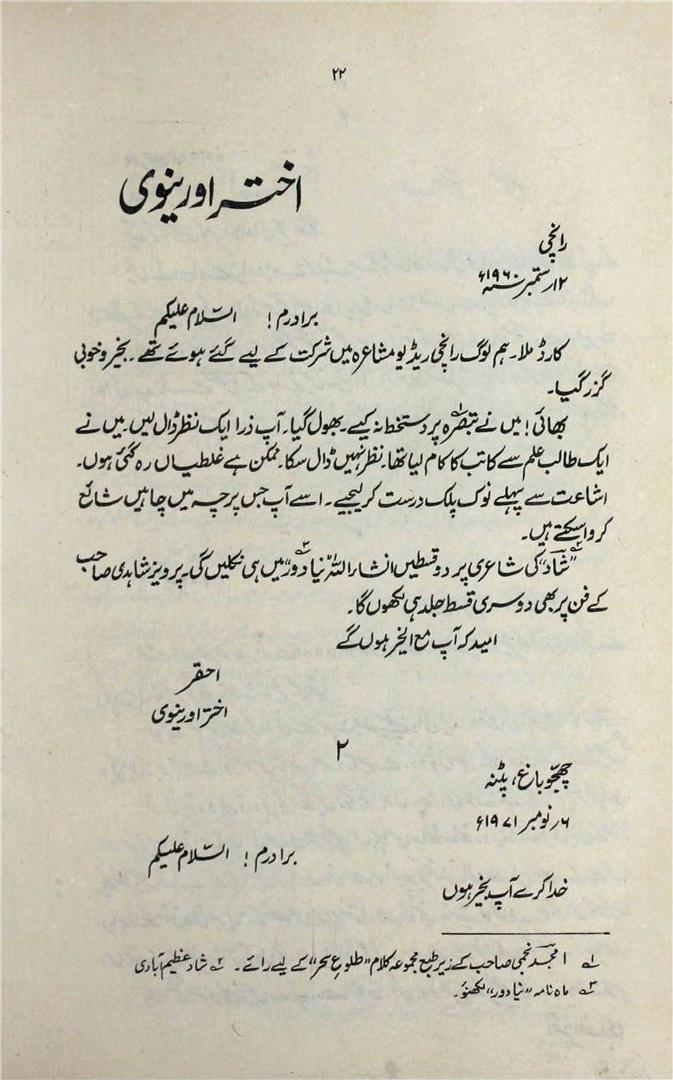 ۲۲
اختر اورینوی
رانچی
۱۲ ستمبر سنہ ۱۹۶۰ء
برادرم! السّلام علیکم
کارڈ ملا۔ ہم لوگ رانچی ریڈیو مشاعرہ میں شرکت کے لیے گئے ہوئے تھے۔ بخیر و خوبی
گزر گیا۔
بھائی! میں نے تبصرہ۱؎ پر دستخط نہ کیے۔ بھول گیا۔ آپ ذرا ایک نظر ڈال لیں۔ میں نے
ایک طالب علم سے کاتب کا کام لیا تھا۔ نظر نہیں ڈال سکا۔ ممکن ہے غلطیاں رہ گئی ہوں۔
اشاعت سے پہلے نوک پلک درست کر لیجیے۔ اسے آپ جس پرچہ میں چاہیں شائع
کروا سکتے ہیں۔
"شاد"۲؎ کی شاعری پر دو قسطیں انشاء اللہ نیا دور"۳؎ میں ہی نکلیں گی۔ پرویز شاہدی صاحب
کے فن پر بھی دوسری قسط جلد ہی لکھوں گا۔
امید کہ آپ مع الخیر ہوں گے
احقر
اختر اورینوی
۲
چھجو باغ، پٹنہ
۶ نومبر ۱۹۷۱ء
برادرم! السّلام علیکم
خدا کرے آپ بخیر ہوں
۱؎ امجد نجمی صاحب کے زیر طبع مجموعہ کلام "طلوع سحر" کے لیے رائے۔ ۲؎ شاد عظیم آبادی
۳؎ ماہ نامہ "نیا دور" لکھنؤ۔